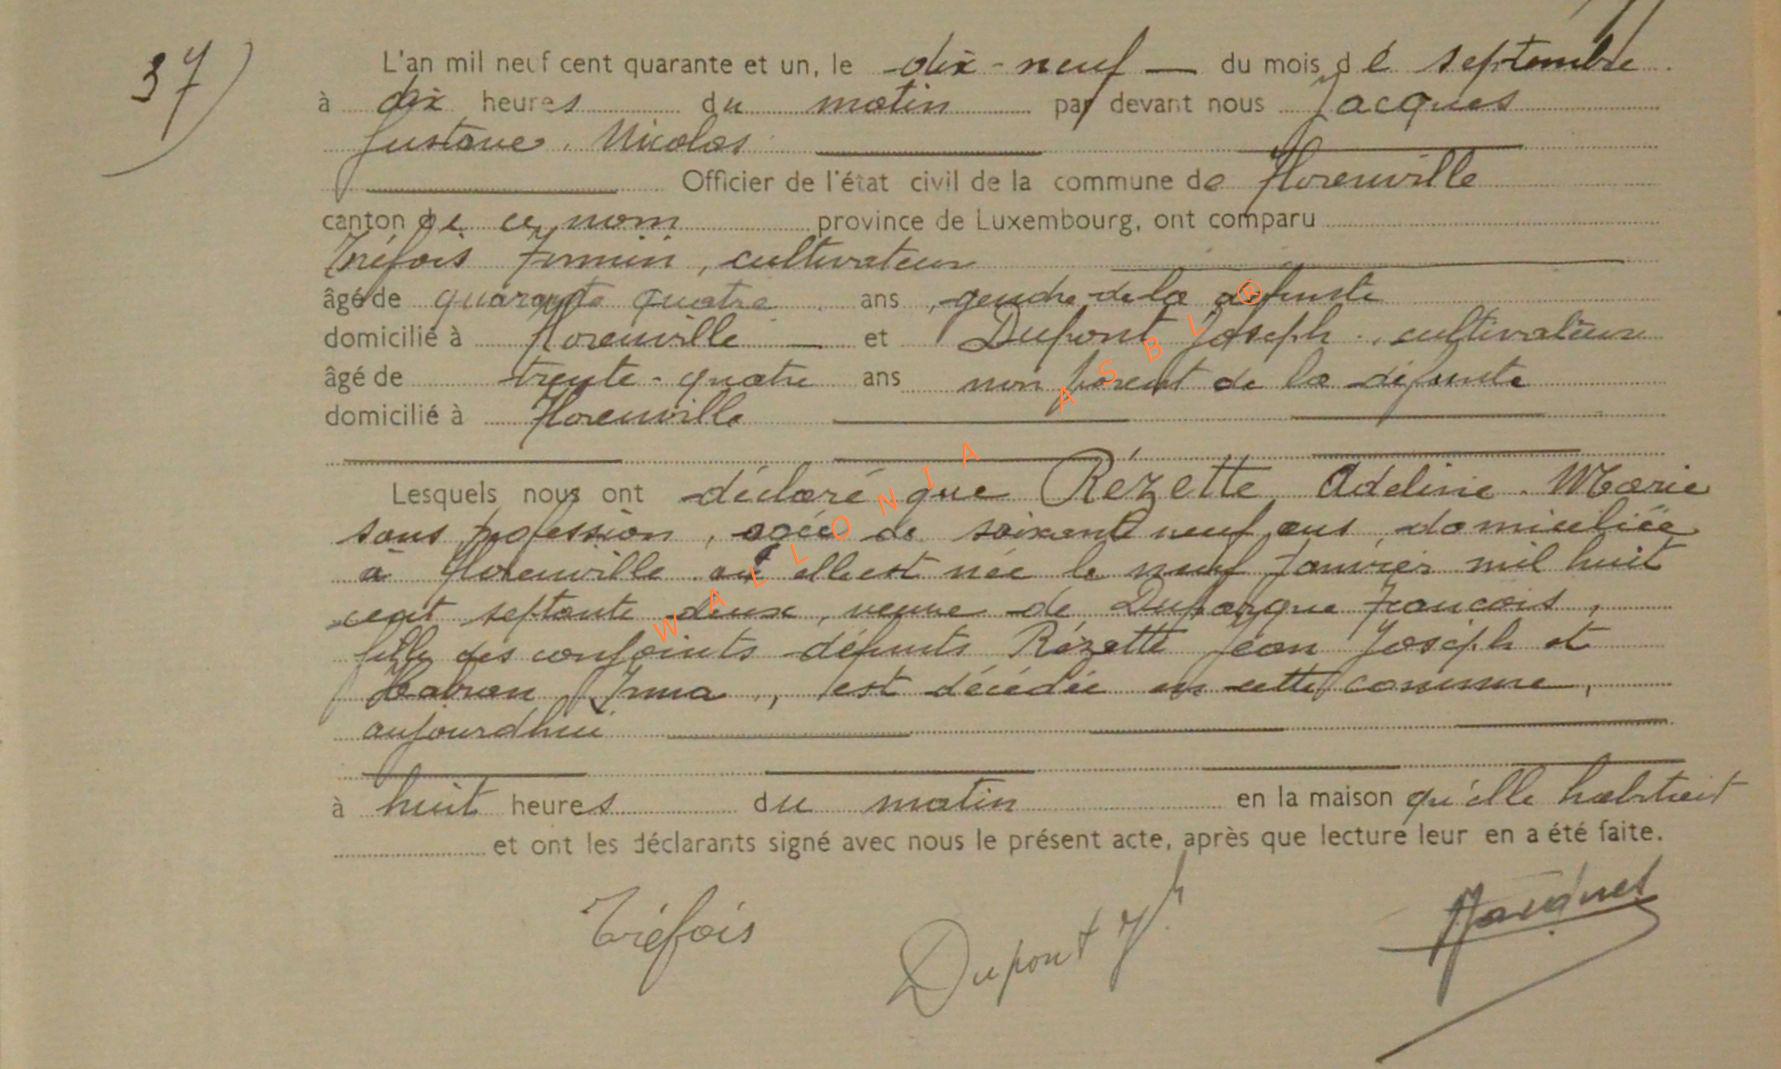 37)
L'an mil neuf cent quarante et un, le dix-neuf du mois de septembre
à dix heures du matin par devant nous Jacques
Gustave, Nicolas
Officier de l'état civil de la commune de Florenville
canton de ce nom province de Luxembourg, ont comparu
Tréfois Firmin, cultivateur
âgé de quarante quatre ans, gendre de la défunte
domicilié à Florenville et Dupont Joseph, cultivateur
âgé de trente-quatre ans non parent de la défunte
domicilié à Florenville
Lesquels nous ont déclaré que Rézette, Adeline, Marie
sans profession, agée de soixante neuf ans, domiciliée
à Florenville où elle est née le neuf Janvier mil huit
cent septante deux, veuve de Duparque François,
fille des conjoints défunts Rézette Jean Joseph et
Irma, est décédée en cette commune,
aujourdhui
à huit heures du matin en la maison qu'elle habitait
et ont les déclarants signé avec nous le présent acte, après que lecture leur en a été faite.
Tréfois
Dupont Jh
Jacques
WALLONIA ASBL ®